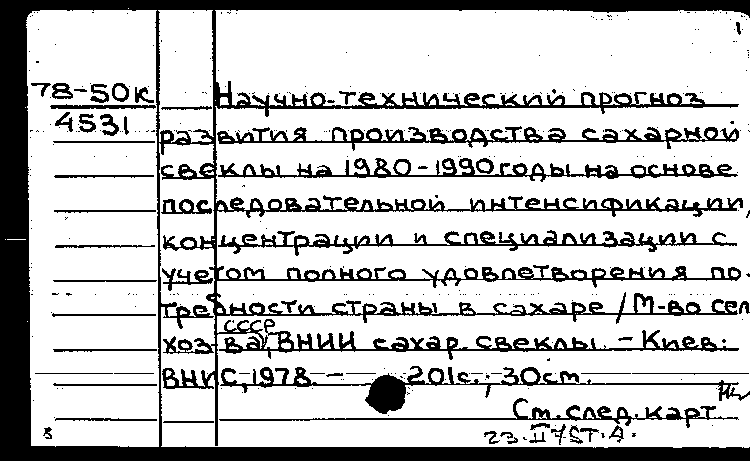 1
78-50К Научно-технический прогноз
4531 развития производства сахарной
свеклы на 1980-1990 годы на основе
последовательной интенсификации,
концентрации и специализации с
учетом полного удовлетворения по-
требности страны в сахаре / М-во сел
СССР
хоз-ва, ВНИИ сахар. свеклы. - Киев:
ВНИС, 1978. - 201с.; 30см.
См. след. карт